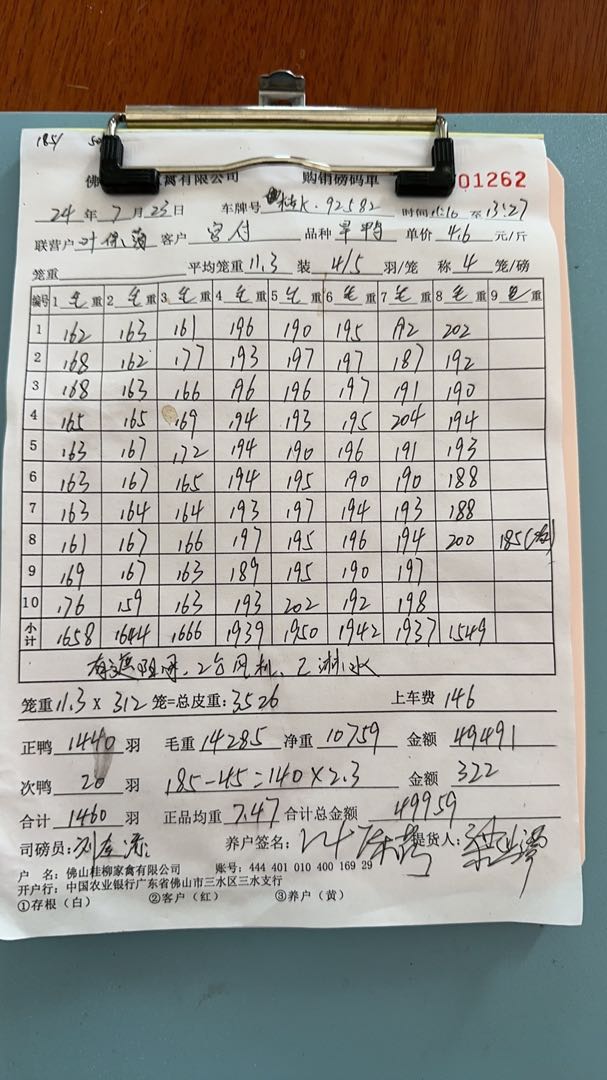 185/ 50
佛 禽有限公司 购销磅码单 01262
24年7月23日 车牌号 桂K·92582 时间 11:10 至 13:27
联营户 叶保 客户 宫付 品种 旱鸭 单价 4.6 元/斤
笼重 平均笼重 11.3 装 4/5 羽/笼 称 4 笼/磅
编号 1 毛重 2 毛重 3 毛重 4 毛重 5 毛重 6 毛重 7 毛重 8 毛重 9 毛重
1 162 163 161 196 190 195 192 202
2 168 162 177 193 197 197 187 192
3 168 163 166 196 196 197 191 190
4 165 165 169 194 193 195 204 194
5 163 167 172 194 190 196 191 193
6 163 167 165 194 195 190 190 188
7 163 164 164 193 197 194 193 188
8 161 167 166 197 195 196 194 200 185
9 169 167 163 189 195 190 197
10 176 159 163 193 202 192 198
小计 1658 1644 1666 1939 1950 1942 1937 1549
有遮阳网、2台风机、已淋水
笼重 11.3 × 312 笼=总皮重: 3526 上车费 146
正鸭 1440 羽 毛重 14285 净重 10759 金额 49491
次鸭 20 羽 185-45=140×2.3 金额 322
合计 1460 羽 正品均重 7.47 合计总金额 49959
司磅员: 养户签名: 提货人:
户 名: 佛山桂柳家禽有限公司 账号: 444 401 010 400 169 29
开户行: 中国农业银行广东省佛山市三水区三水支行
①存根（白） ②客户（红） ③养户（黄）